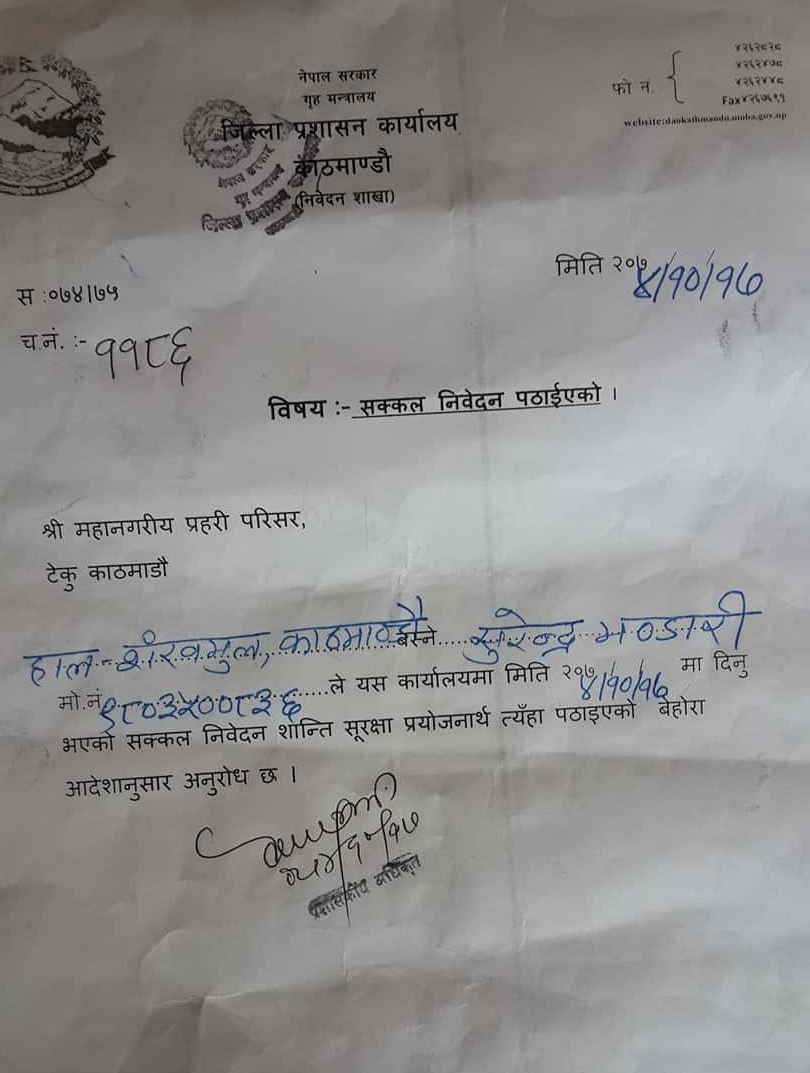 नेपाल सरकार
गृह मन्त्रालय
जिल्ला प्रशासन कार्यालय
काठमाण्डौ
(निवेदन शाखा)
फो नं.
४२६२८२८
४२६२४७८
४२६२४४८
Fax४२६७६९१
website:daokathmandu.moha.gov.np
नेपाल सरकार
गृह मन्त्रालय
जिल्ला प्रशासन
मिति २०७४/१०/१७
स :०७४।७५
च.नं. :- ११८६
विषय :- सक्कल निवेदन पठाईएको ।
श्री महानगरीय प्रहरी परिसर,
टेकु काठमाडौ
हाल - शंखमुल, काठमाण्डौ बस्ने.....सुरेन्द्र भण्डारी
मो.नं ९८०३५००८३६.....ले यस कार्यालयमा मिति २०७४/१०/१७ मा दिनु
भएको सक्कल निवेदन शान्ति सूरक्षा प्रयोजनार्थ त्यँहा पठाइएको बेहोरा
आदेशानुसार अनुरोध छ ।
प्रशासकीय अधिकृत